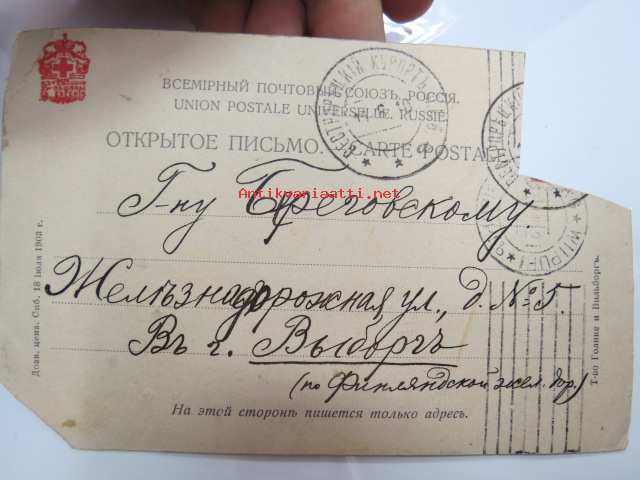 ВСЕМІРНЫЙ ПОЧТОВЫЙ СОЮЗЪ. РОССІЯ.
UNION POSTALE UNIVERSELLE. RUSSIE.
ОТКРЫТОЕ ПИСЬМО. CARTE POSTAL
СЕСТРОРѢЦКІЙ КУРОРТЪ
WIIPURI
Antikvariaatti.net
Г-ну Бреговскому.
Желѣзнодорожная ул., д. № 5.
Въ г. Выборгъ
(по Финляндской жел. дор.)
На этой сторонѣ пишется только адресъ.
Дозв. ценз. Спб. 18 Іюля 1903 г.
Т-во Голике и Вильборгъ.